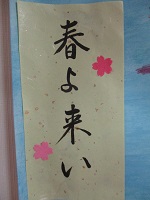 春よ来い